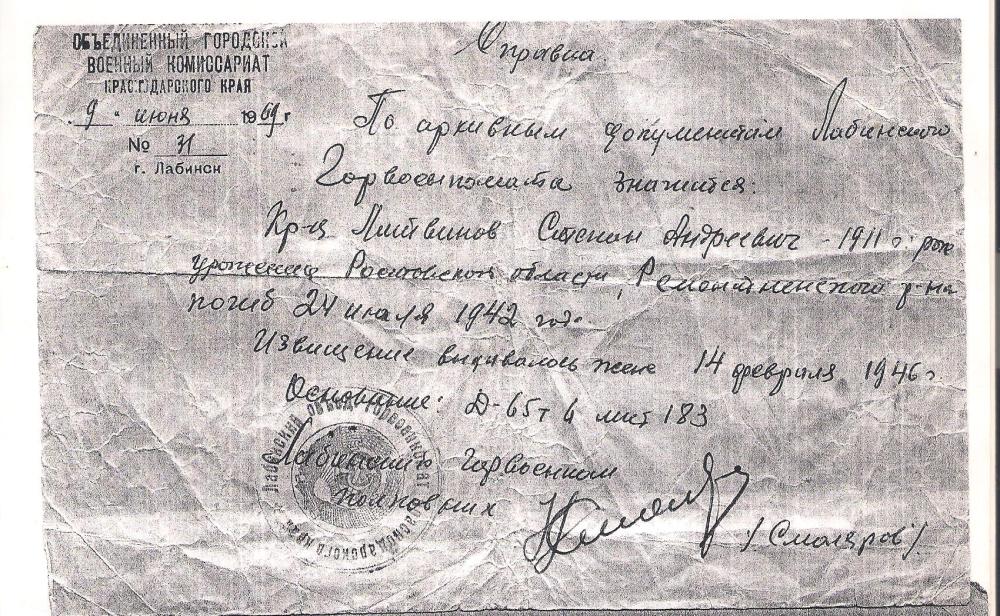 ОБЪЕДИНЕННЫЙ ГОРОДСКОЙ
ВОЕННЫЙ КОМИССАРИАТ
КРАСНОДАРСКОГО КРАЯ
„9“ июня 1969 г
№ 31
г. Лабинск
Справка.
По архивным документам Лабинского
Горвоенкомата значится:
Кр-ц Литвинов Степан Андреевич - 1911 г. рож
уроженец Ростовской области, Ремонтненского р-на
погиб 24 июля 1942 год.
Извищение выдавалось жене 14 февраля 1946 г.
Основание: Д-65 т 4 лист 183
Лабинский Горвоенком
полковник
/Смоляров/
Лабинский объед. горвоенкомат
Краснодарского края